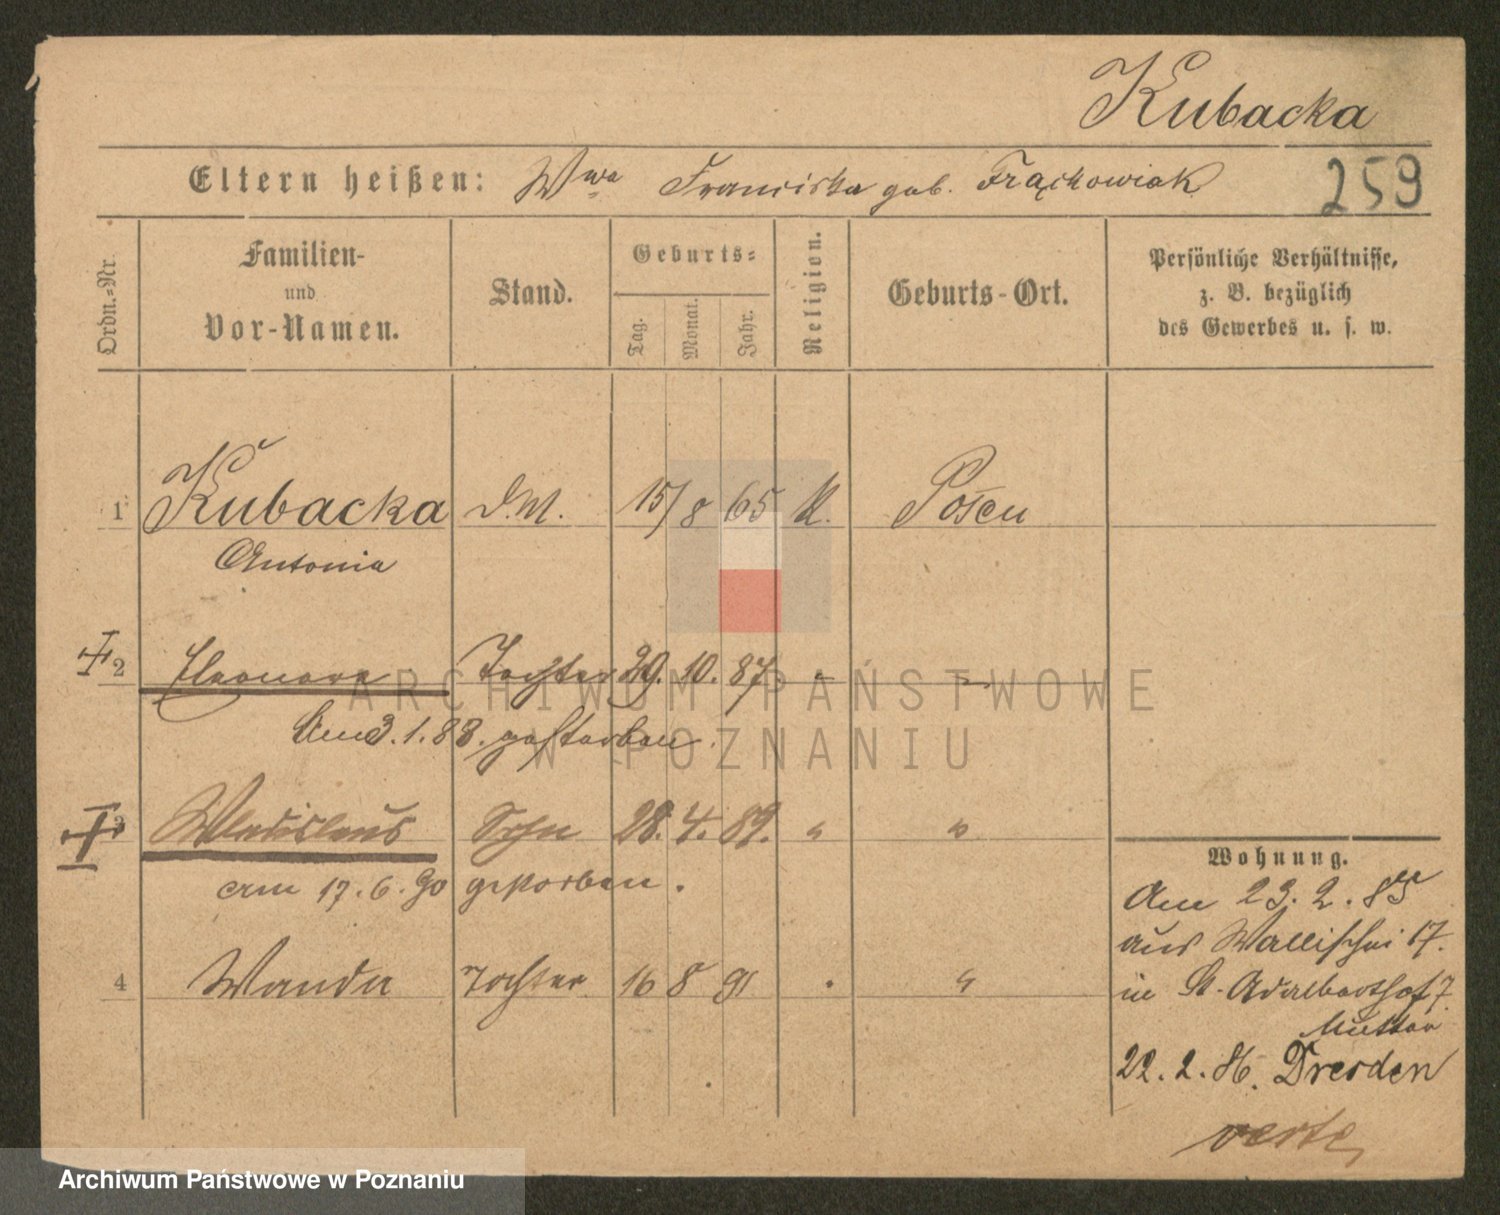 Kubacka
Eltern heißen: Wwe Franciska geb. Frąckowiak
259
Ordn.-Nr.
Familien- und Vor-Namen.
Stand.
Geburts-
Tag. Monat. Jahr.
Religion.
Geburts-Ort.
Persönliche Verhältnisse, z. B. bezüglich des Gewerbes u. s. w.
1 Kubacka D.M. 15/8 65 K. Posen
Antonia
2 Eleonora Tochter 29. 10. 87 " "
Am 3. 1. 88. gestorben.
3 Wladislaus Sohn 28. 4. 89. " "
am 17. 6. 90 gestorben.
4 Wanda Tochter 16 8 91 " "
Wohnung.
Am 23. 2. 85
aus Wallischei 17.
in St. Adalberthof 7
Mutter
22. 2. 86. Dresden
verte
ARCHIWUM PAŃSTWOWE
W POZNANIU
Archiwum Państwowe w Poznaniu